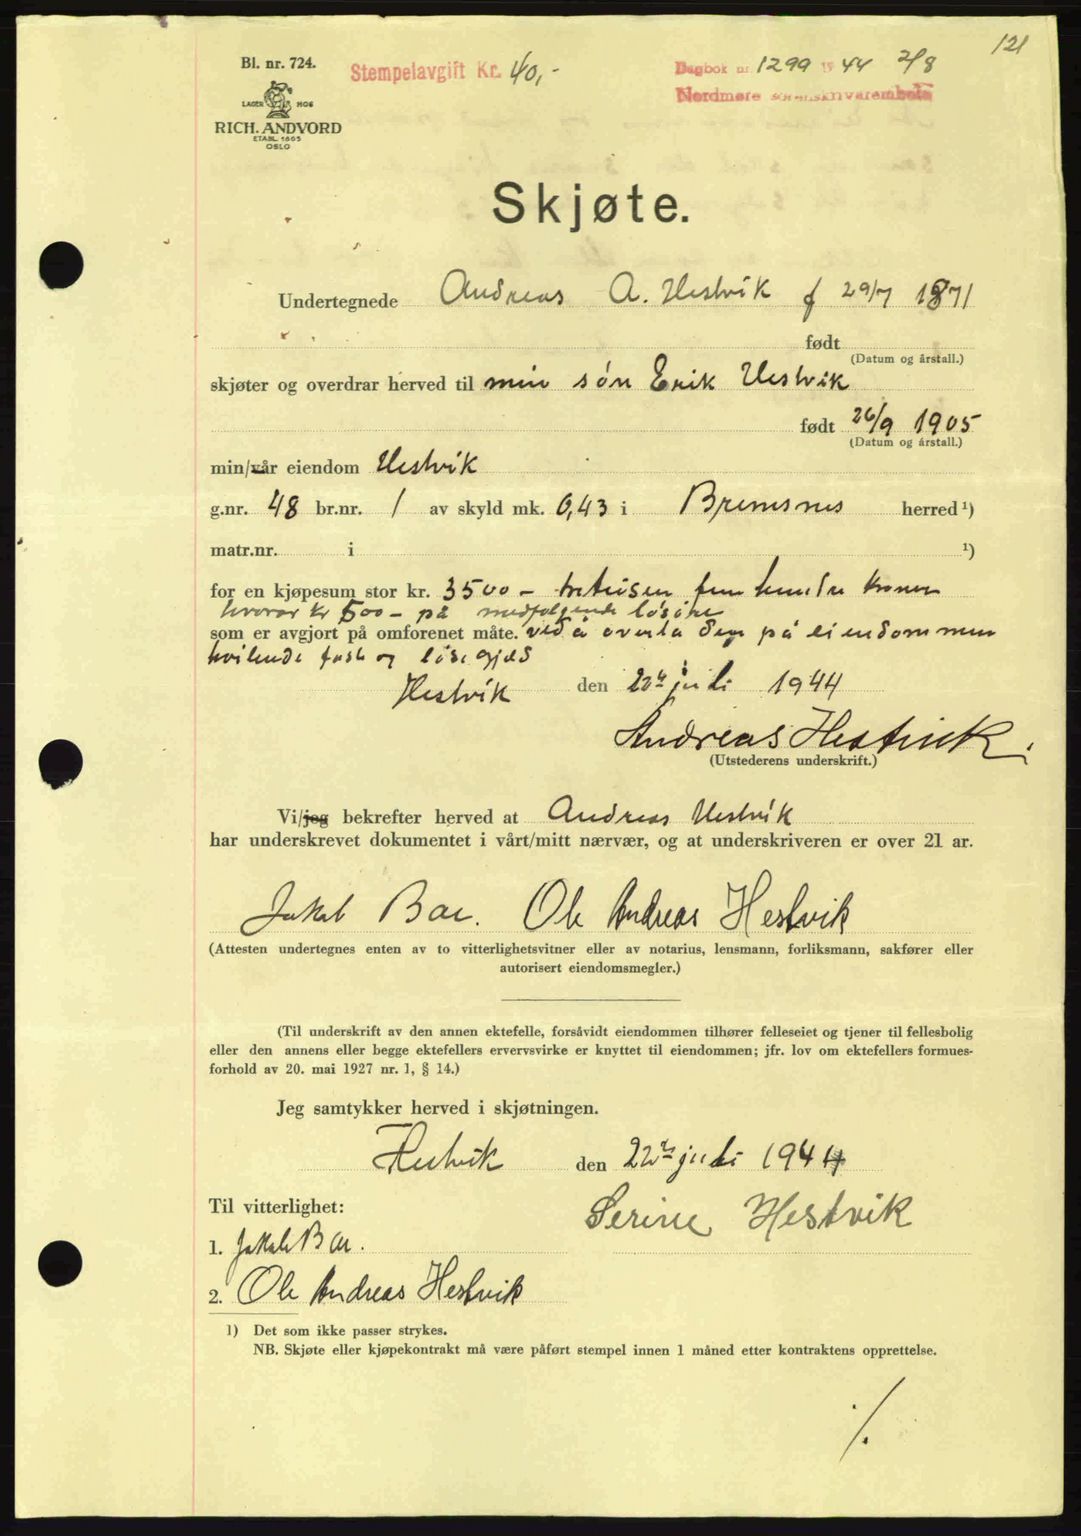 121
Bl. nr. 724.
Stempelavgift Kr. 40,-
Dagbok nr 1299 1944 2/8
Nordmøre sorenskrivarembete
LAGER NO6
RICH. ANDVORD
ETABL. 1865
OSLO
Skjøte.
Undertegnede Andreas A. Hestvik f 29/7 1871
født
(Datum og årstall.)
skjøter og overdrar herved til min søn Erik Hestvik
født 26/9 1905
(Datum og årstall.)
min/vår eiendom Hestvik
g.nr. 48 br.nr. 1 av skyld mk. 0,43 i Bremsnes herred ¹)
matr.nr. i ¹)
for en kjøpesum stor kr. 3500 – tretusen fem hundre kroner
hvorav kr 500 – på medfølgende løsøre
som er avgjort på omforenet måte. ved å overta den på eiendommen
hvilende fast og løse gjeld
Hestvik den 22de juli 1944
Andreas Hestvik
(Utstederens underskrift.)
Vi/jeg bekrefter herved at Andreas Hestvik
har underskrevet dokumentet i vårt/mitt nærvær, og at underskriveren er over 21 ar.
Jakob Bae. Ole Andreas Hestvik
(Attesten undertegnes enten av to vitterlighetsvitner eller av notarius, lensmann, forliksmann, sakfører eller
autorisert eiendomsmegler.)
(Til underskrift av den annen ektefelle, forsåvidt eiendommen tilhører felleseiet og tjener til fellesbolig
eller den annens eller begge ektefellers ervervsvirke er knyttet til eiendommen; jfr. lov om ektefellers formues-
forhold av 20. mai 1927 nr. 1, § 14.)
Jeg samtykker herved i skjøtningen.
Hestvik den 22de juli 1944
Til vitterlighet:
Serine Hestvik
1. Jakob Bae.
2. Ole Andreas Hestvik
1) Det som ikke passer strykes.
NB. Skjøte eller kjøpekontrakt må være påført stempel innen 1 måned etter kontraktens opprettelse.
./.